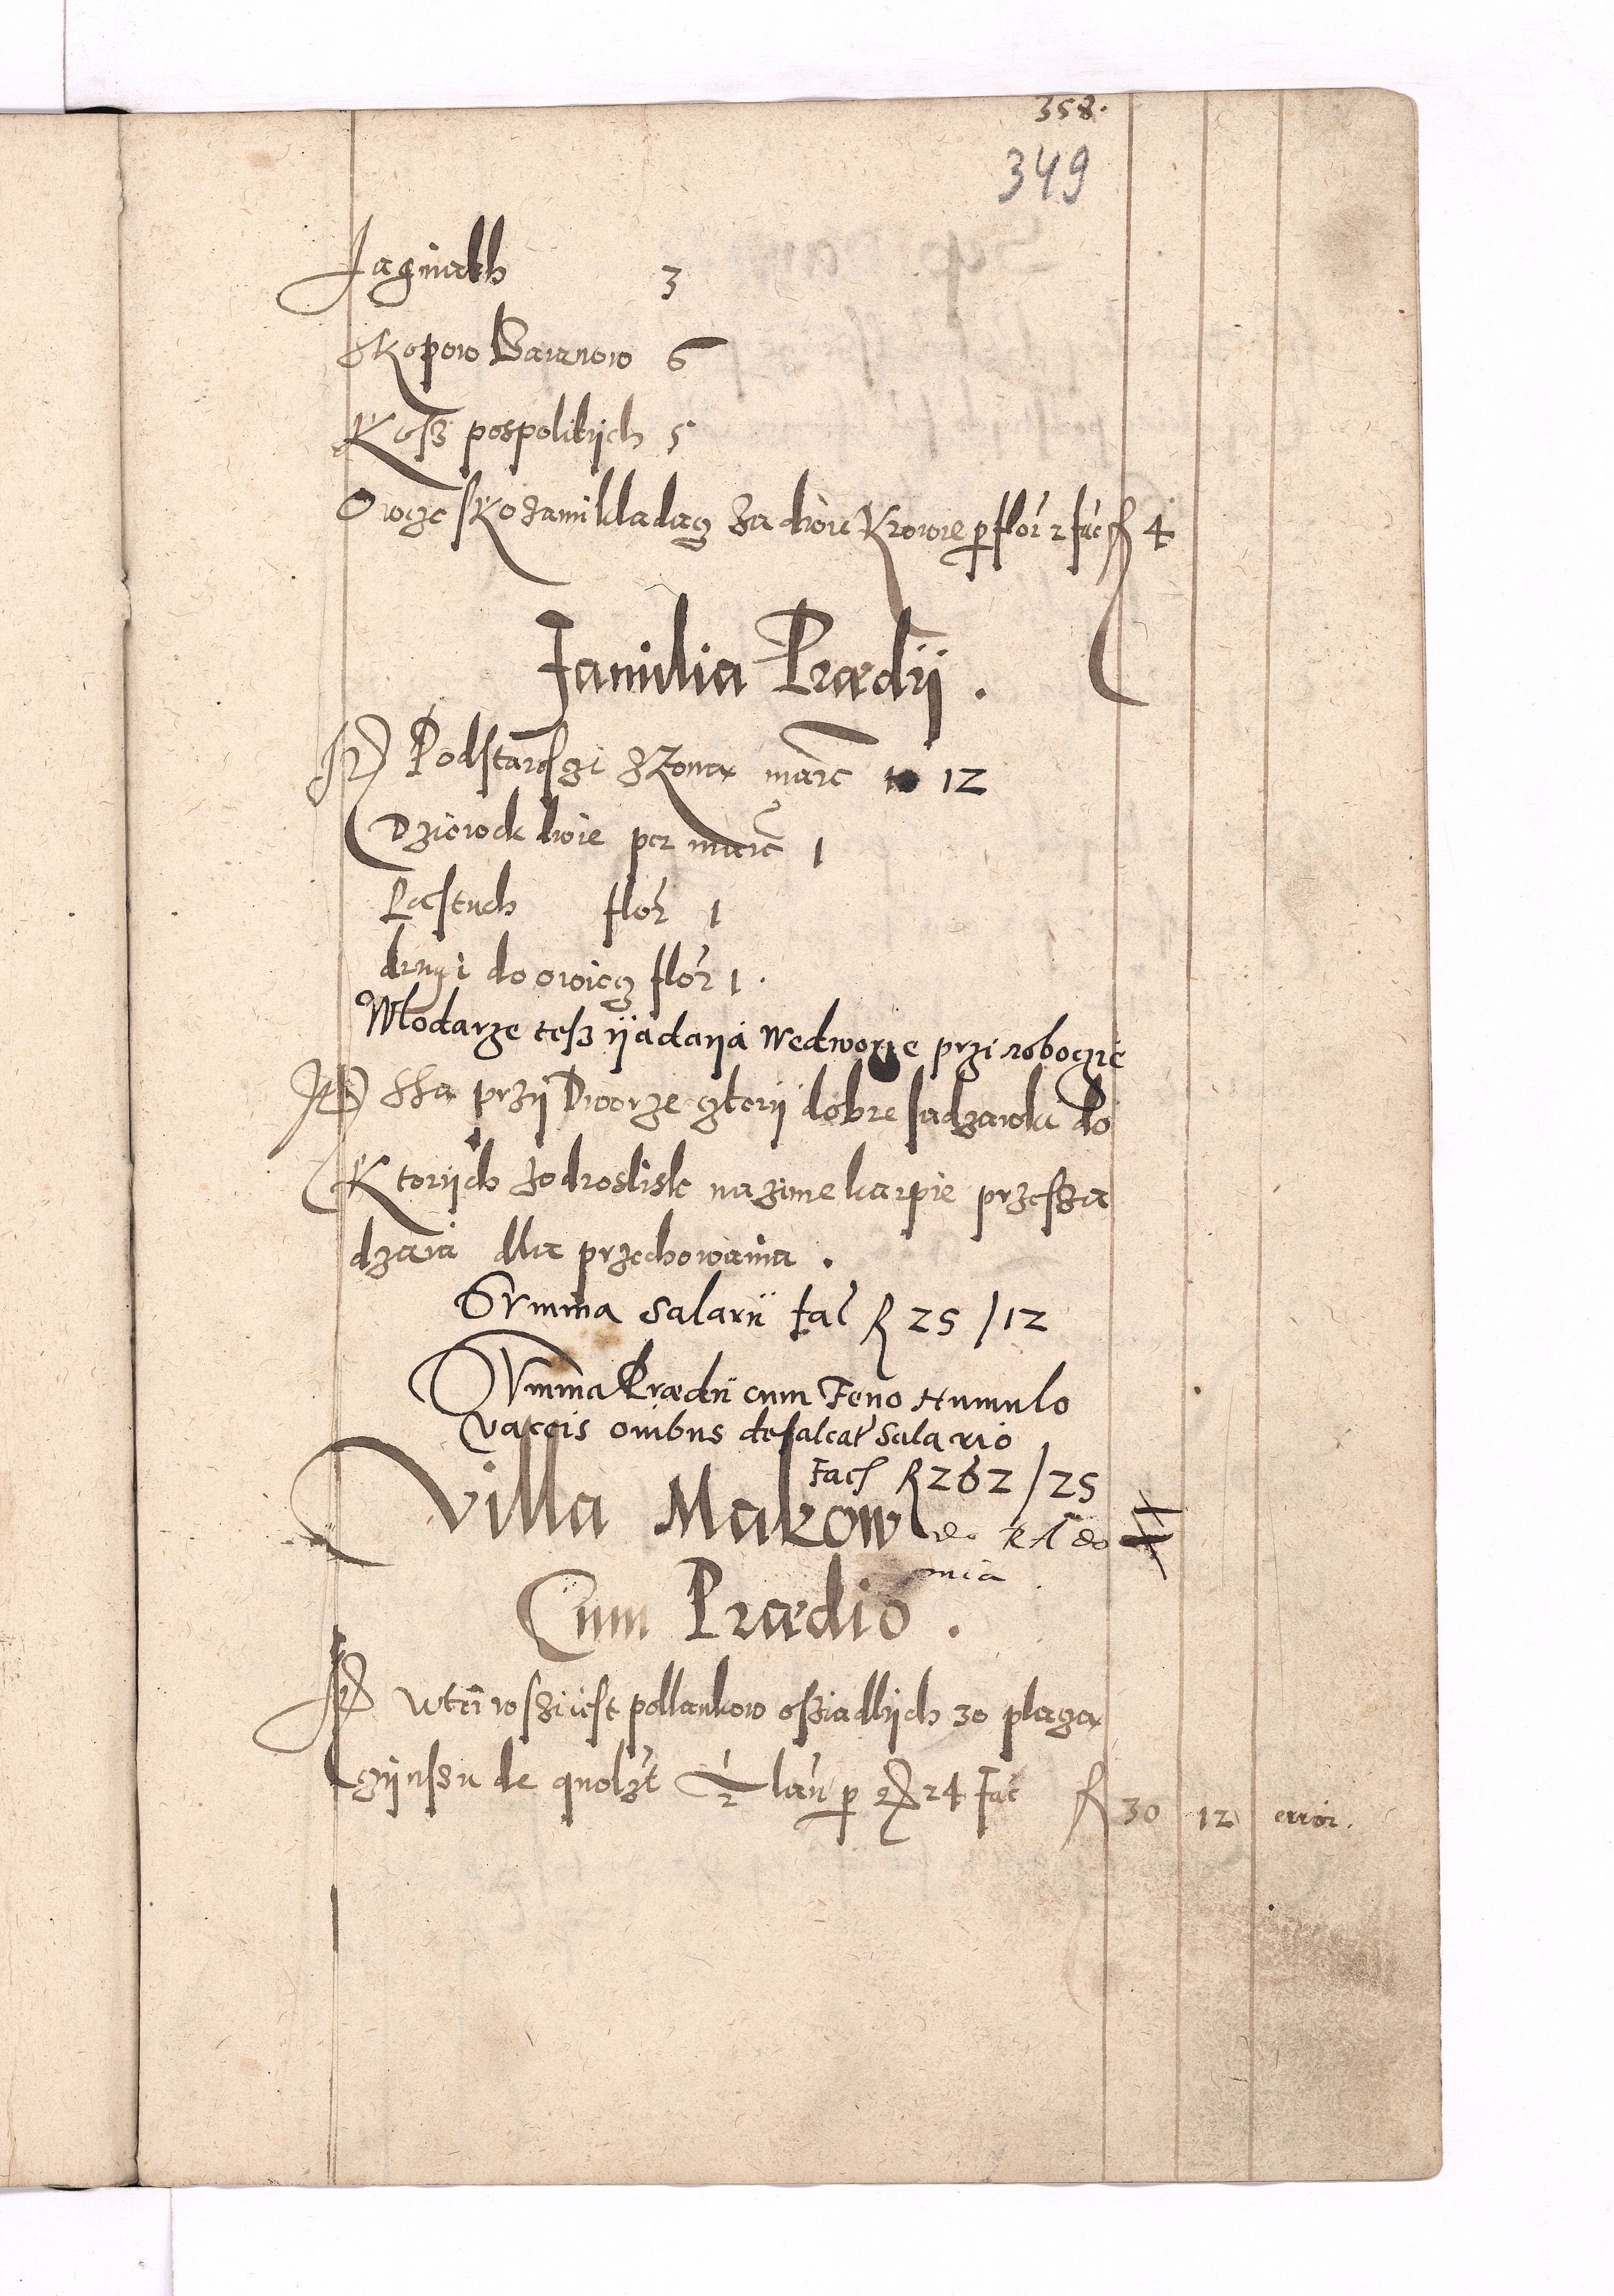 358.
349
Jagniath 3
Skopow Baranow 6
Kosz pospolitÿch 5
Owcze skozami kladącz za dwie Krowie p flor 2 fac f 4
Familia Prædÿ.
It Podstarosczi z Zoną marc 12
Dziewek dwie per marc 1
Pastuch flor 1
drugi do owiecz flor 1.
Włodarze tesz ÿadaÿą wedworze przi roboczie
It Ssą przÿ Dworze czterÿ dobre sadzawki do
Ktorÿch zodrosliskc na zime karpie przesza
dzaią dla przechowania.
Summa Salarii fac f 25 / 12
Summa Prædii cum Feno Humulo
vaccis ovibus defalcat Salario
Fac f 262 / 25
Villa Makow do RAdo
mia
Cum Prædio.
It wteÿ wsziiest pollankow osziadlÿch 30 placzą
czÿnszu de quolzt 1/2 lan p g 24 Fac f 30 12 error.